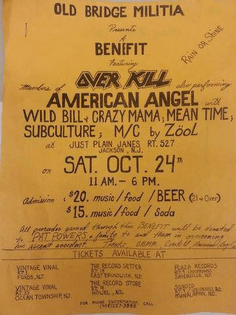 OLD BRIDGE MILITIA
Presents
A
BENIFIT
Featuring
RAIN OR SHINE
Members of OVER KILL also performing
AMERICAN ANGEL with
WILD BILL & CRAZY MAMA; MEAN TIME;
SUBCULTURE; M/C by Zöol
at JUST PLAIN JANES RT. 527
JACKSON, N.J.
on SAT. OCT. 24th
11 A.M. - 6 P.M.
Admission: $20. music/food/BEER (21 & Over)
$15. music/food/Soda
All proceeds earned through this BENEFIT will be donated
to PAT POWERS & family to aid them in overcoming
TICKETS AVAILABLE AT
VINTAGE VINAL
FORDS, NJ.
VINTAGE VINAL
OCEAN TOWNSHIP, NJ
THE RECORD SETTER
RT. 18
EAST BRUNSWICK, NJ.
THE RECORD
PLAZA RECORDS
MANALAPAN, NJ.
FOR MORE INFORMATION CALL